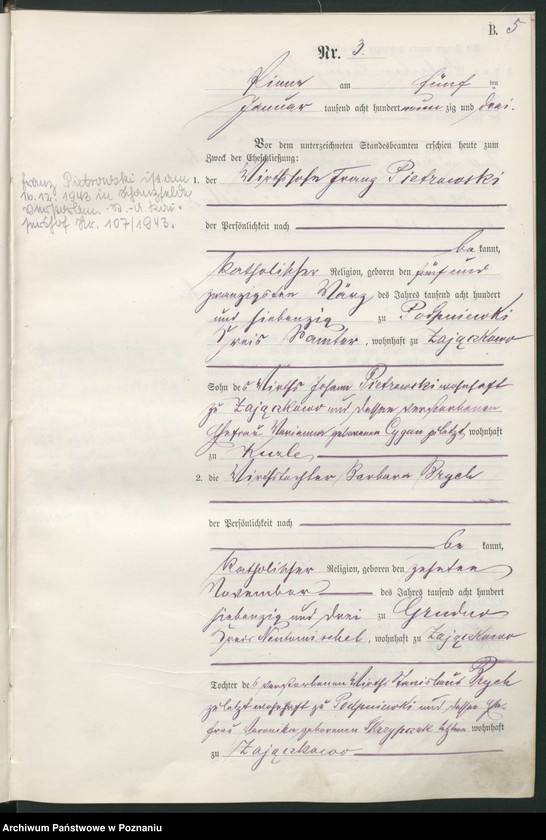 B. 5
Nr. 3.
Pinne am fünf ten
Januar tausend acht hundert neun zig und drei.
Vor dem unterzeichneten Standesbeamten erschien heute zum
Zweck der Eheschließung:
1. der Wirthssohn Franz Pietrowski
der Persönlichkeit nach
be kannt,
katholischer Religion, geboren den fünf und
zwanzigsten März des Jahres tausend acht hundert
und siebenzig zu Podpniewki
Kreis Samter, wohnhaft zu Zajączkowo
Sohn des Wirths Johann Pietrowski wohnhaft
zu Zajączkowo und dessen verstorbenen
Ehefrau Marianna geborenen Cygan zuletzt wohnhaft
zu
2. die Wirthstochter Barbara Brych
der Persönlichkeit nach
be kannt,
katholischer Religion, geboren den zehnten
November des Jahres tausend acht hundert
siebenzig und drei zu Grudno
Kreis Neutomischel, wohnhaft zu Zajączkowo
Tochter des verstorbenen Wirths Stanislaus Brych
zuletzt wohnhaft zu Podpniewki und dessen Ehe-
frau Veronika geborenen letztere wohnhaft
zu Zajączkowo
Franz Pietrowski ist am
10.12.1943 in
verstorben. St.-A.
Nr. 107/1943.
Archiwum Państwowe w Poznaniu